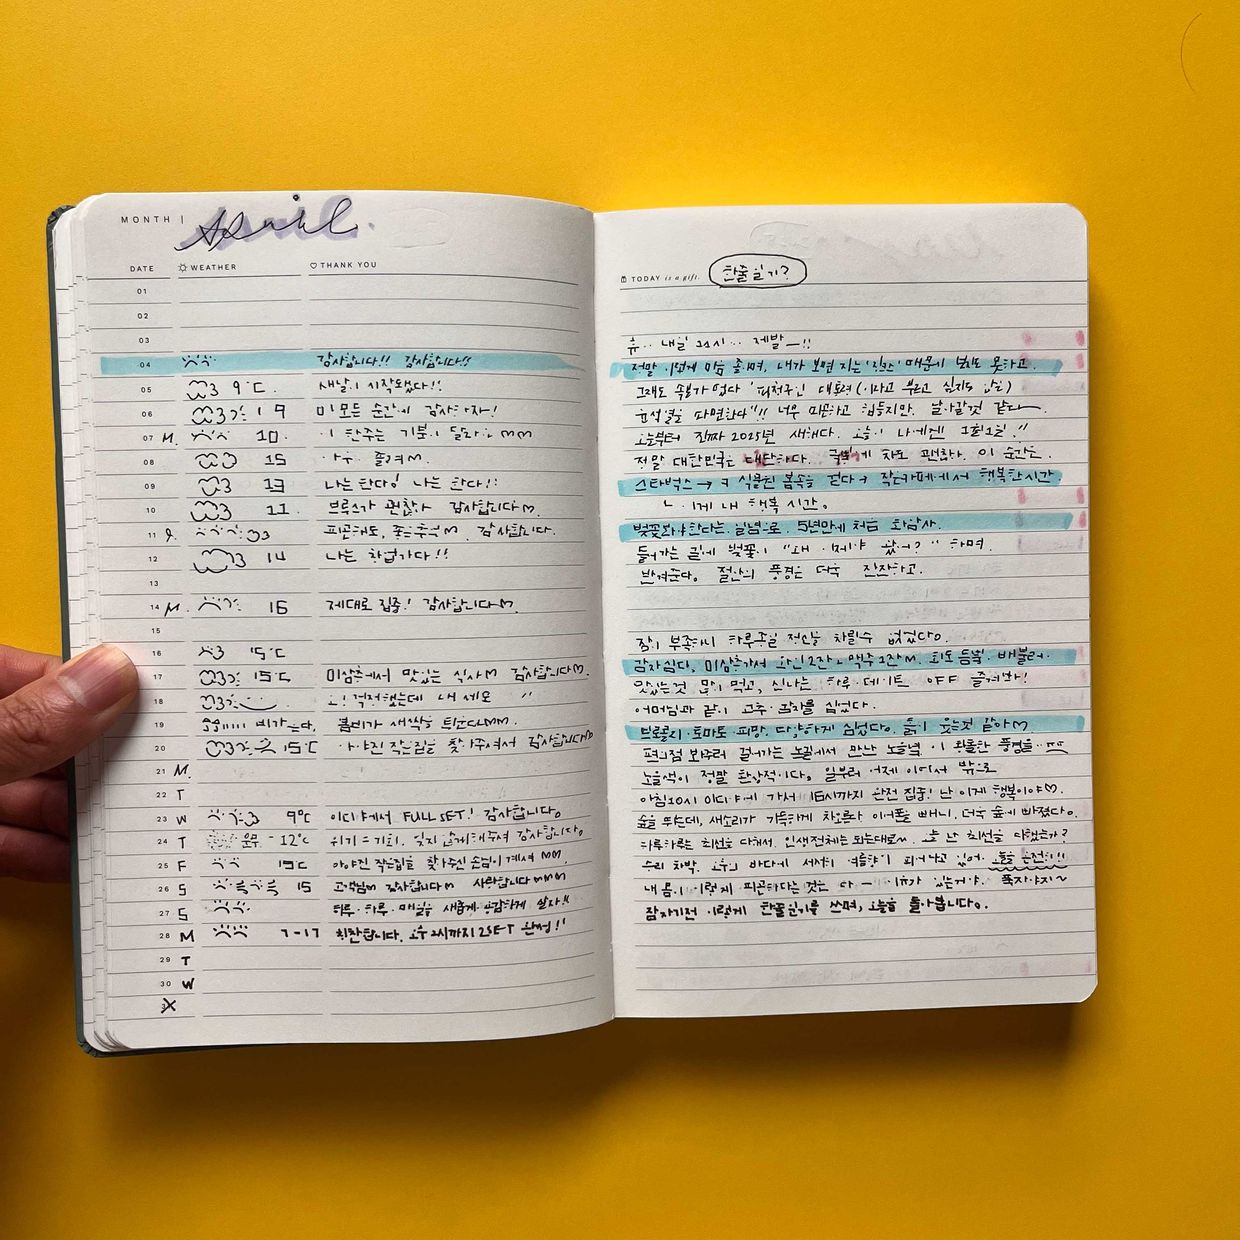 MONTH | April.
DATE WEATHER THANK YOU
01
02
03
04 감사합니다!! 감사합니다!!
05 9°C 새날이 시작됐다!!
06 9 이 모든 순간에 감사하자!
07 M. 10. 이 한주는 기분이 달라
08 15 즐겨
09 13 나는 한다! 나는 한다!!
10 11. 브루스가 괜찮아 감사합니다
11 피곤해도, 좋은추억 감사합니다.
12 14 나는 작업가다!!
13
14 M. 16 제대로 집중! 감사합니다
15
16 15°C
17 15°C 미삼촌에서 맛있는 식사 감사합니다
18 걱정했는데 내 세모 "
19 비가온다. 봄비가 새싹을 틔운다
20 15°C 작은집을 찾아주셔서 감사합니다
21 M.
22 T
23 W 9°C 이디야에서 FULL SET! 감사합니다.
24 T 우무 -12°C 위기=기회. 잊지 않게해주셔 감사합니다.
25 F 19°C 아야진 작은집을 찾아주신 손님이 계셔
26 S 15 고객님 감사합니다 사랑합니다
27 S 하루·하루·매일을 새롭게 살자!!
28 M 7-17 칭찬합니다. 오후 2시까지 2SET 완성!!
29 T
30 W
31
TODAY is a gift. 한줄일기?
휴.. 내일 11시... 제발—!!
정말 이렇게 마음 졸이며, 내가 보면 지는 '징크스' 때문에 보지도 못하고.
그래도 속보가 떴다 '피청구인 대통령(이라고 부르고 싶지도 않은)
윤석열을 파면한다"!! 너무 피곤하고 힘들지만. 날아갈것 같다
오늘부터 진짜 2025년 새해다. 오늘이 나에겐 1월1일!!
정말 대한민국은 대단하다. 차도 괜찮다. 이 순간은.
스타벅스 → 걷다 → 작은카페에서 행복한시간.
이게 내 행복 시간.
벚꽃봐야한다는 일념으로. 5년만에 처음 화암사.
들어가는 길에 벚꽃이 "왜 이제야 왔어?" 하며.
반겨준다. 절안의 풍경은 더욱 잔잔하고.
잠이 부족하니 하루종일 정신을 차릴수 없었다.
감자심다, 미삼촌가서 와인2잔, 맥주1잔 피로 등불. 배불러.
맛있는것 많이 먹고, 신나는 하루·데이트 OFF 즐겨봐!
어머님과 같이 고추·감자를 심었다.
브로콜리·토마토·피망. 다양하게 심었다. 흙이 웃는것 같아
편의점 봐주러 걸어가는 논길에서 만난 노을녘. 이 황홀한 풍경을
노을색이 정말 환상적이다. 일부러 어제 이어서 밖으로
아침10시 이디야에 가서 16시까지 완전 집중! 난 이게 행복이야
숲을 뛰는데, 새소리가 가득하게 차온다 이어폰 빼니. 더욱 숲에 빠졌다.
하루하루는 최선을 다해서. 인생전체는 되는대로~. 오늘 난 최선을 다했는가?
수리 차박. 오후 바다에 서서히 어둠이 피어나고 있어. 오늘은 운전!!!
내 몸이 이렇게 피곤하다는것은 다 — 이유가 있는거야. 푹자야지~
잠자기전 이렇게 한줄일기를 쓰며, 오늘을 돌아봅니다.